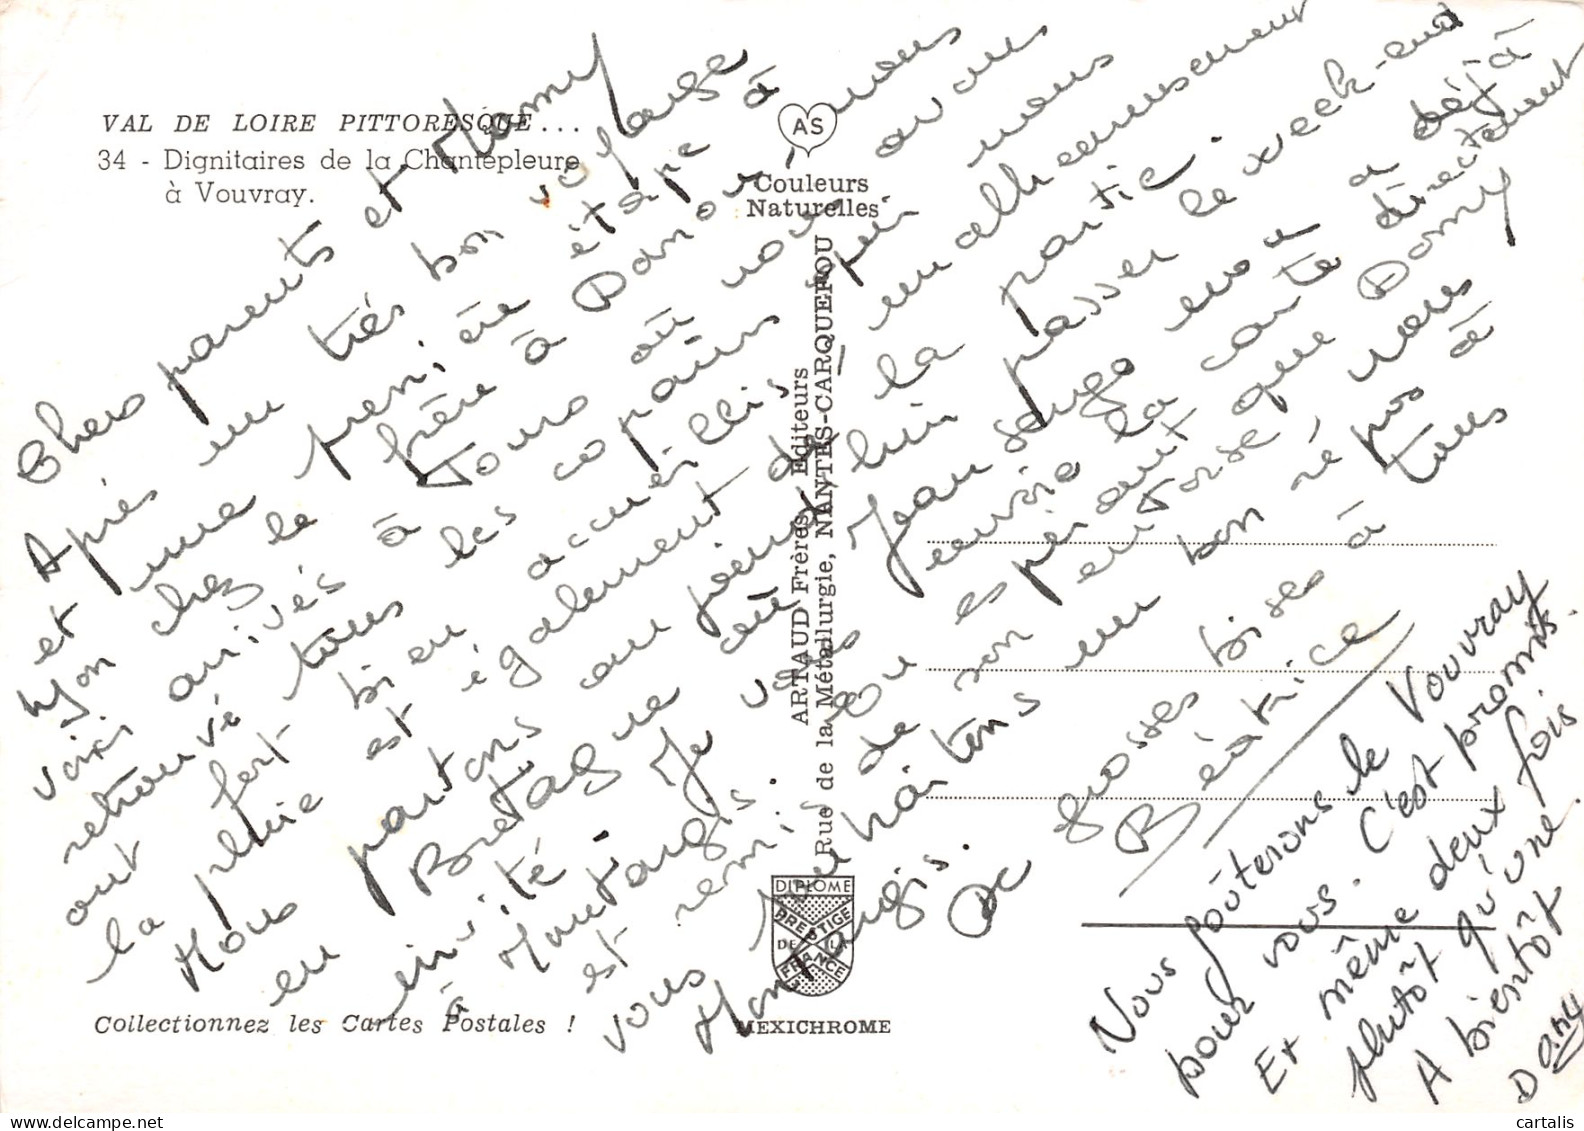 VAL DE LOIRE PITTORESQUE...
34 - Dignitaires de la Chantepleure
à Vouvray.
AS
Couleurs
Naturelles
ARTAUD Frères, Editeurs
Rue de la Métallurgie, NANTES-CARQUEFOU
DIPLOME
PRESTIGE
DE LA
FRANCE
MEXICHROME
Collectionnez les Cartes Postales !
Chers parents et Mamy
Après un très bon voyage
et une première étape à
Lyon chez le frère à Dany, nous
voici arrivés à Tours où nous avons
retrouvé tous les copains qui nous
ont fort bien accueillis malheureusement
la pluie est également de la partie.
Nous partons au jour passer le week-end
en Bretagne où Jean Serge nous a déjà
invité. Je vous envoie la carte directement
à Montargis en espérant que Damy
est remis de son entorse, nous
vous souhaitons un bon répos à
Montargis.
De grosses bises à tous
Béatrice
Nous goûterons le Vouvray
pour vous. C'est promis.
Et même deux fois
plutôt qu'une.
A bientôt
Dany
cartalis